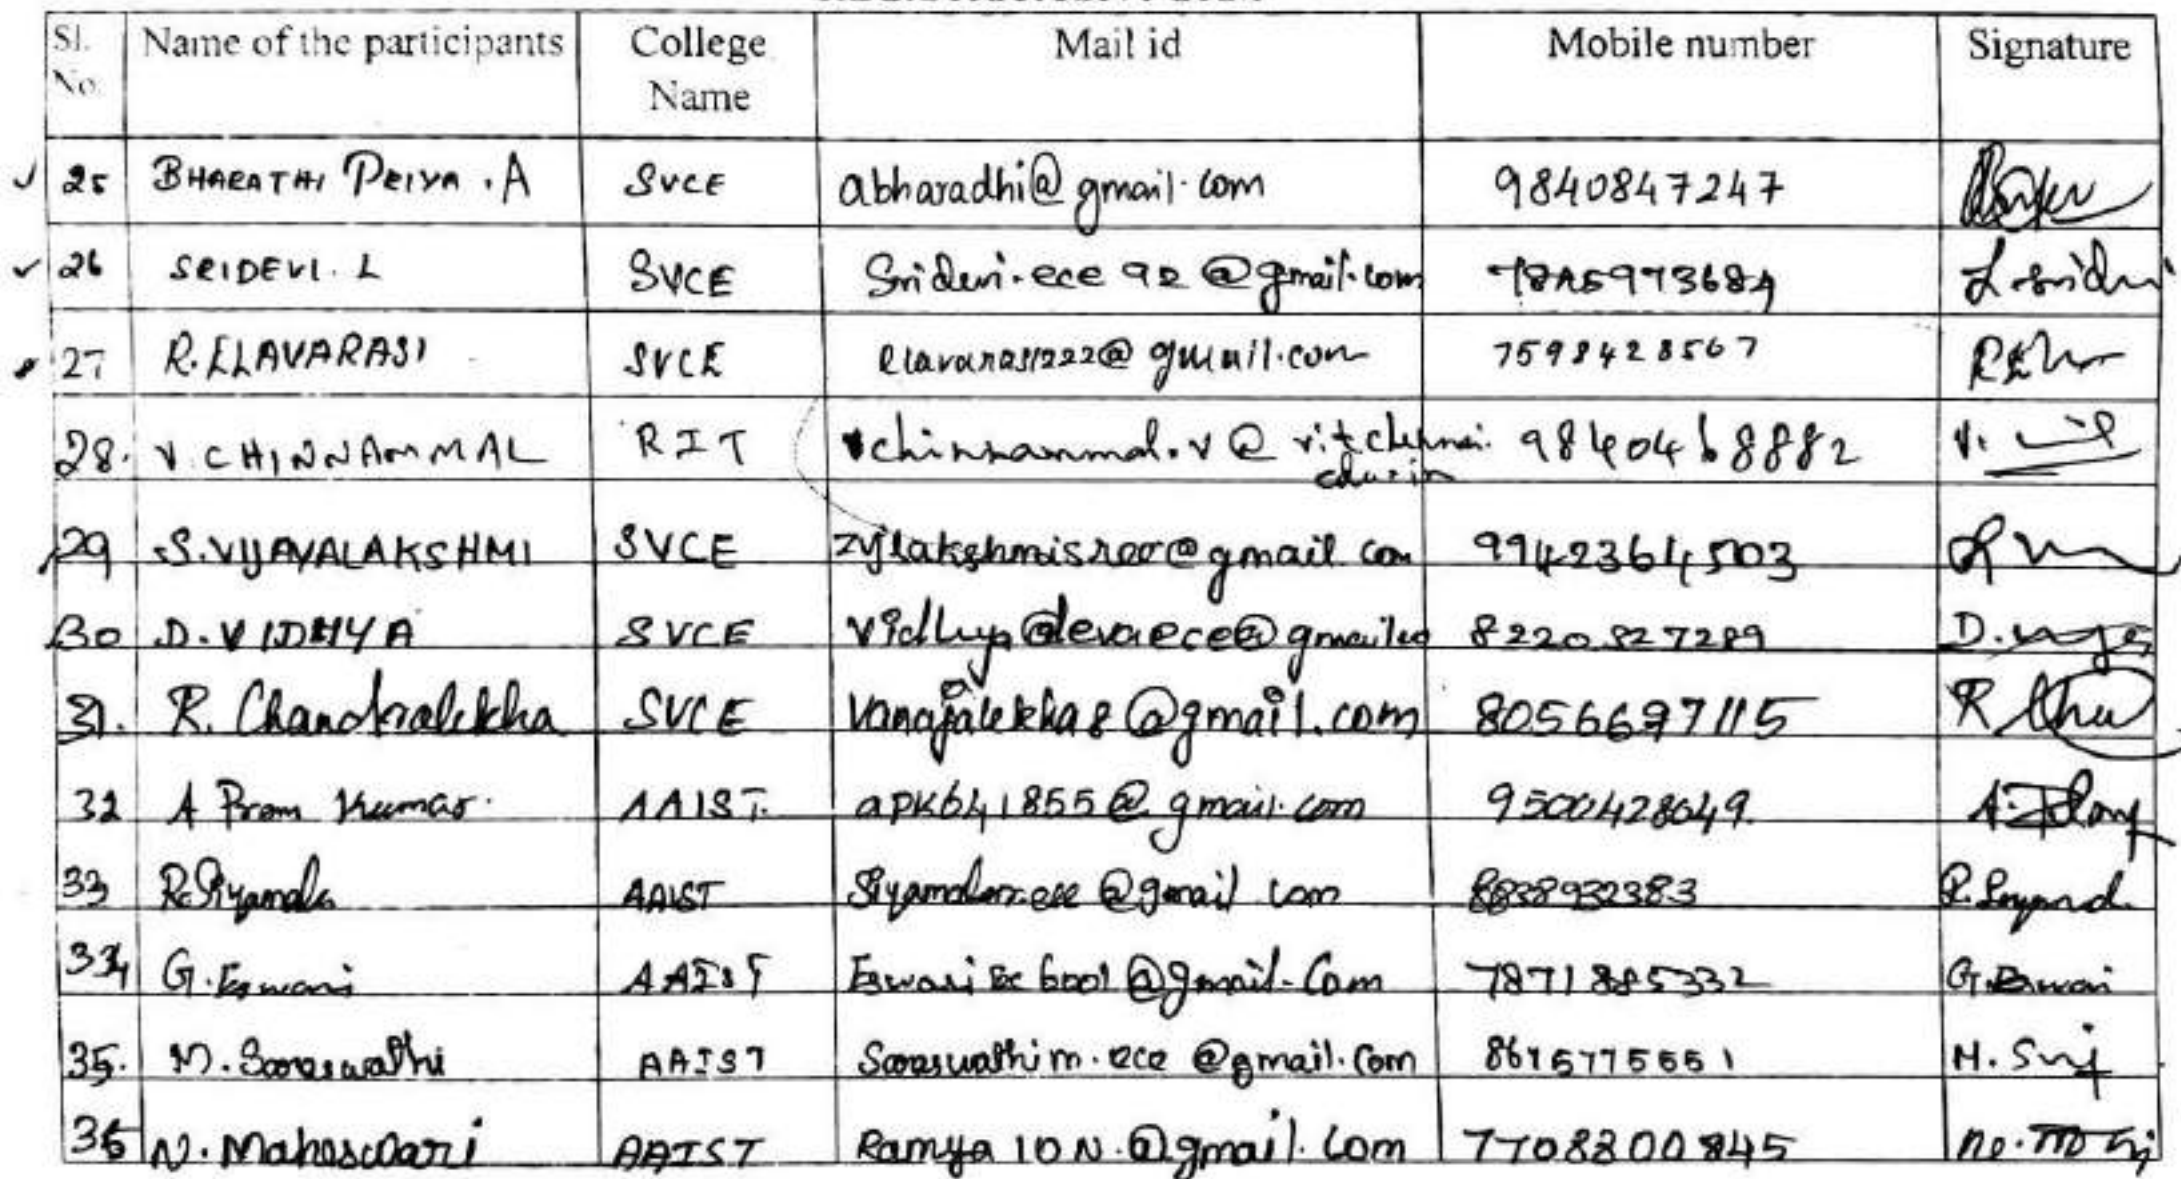 Sl. No. Name of the participants College Name Mail id Mobile number Signature
25 BHARATHI PRIYA . A SVCE abharadhi@gmail.com 9840847247
26 SRIDEVI. L SVCE Sridevi.ece92@gmail.com L Sridevi
27 R. ELAVARASI SVCE elavarasi222@gmail.com 7598428567
28. V. CHINNAMMAL RIT chinnammal.v@ritchennai.edu.in 9840468882 V.
29 S. VIJAYALAKSHMI SVCE @gmail.com 9942364503
30 D. VIDHYA SVCE 8220527289 D.
31. R. Chandralekha SVCE vanajalekha8@gmail.com 8056697115 R
32 A Prem Kumar. AAIST. apk641855@gmail.com 9500428649.
33 R. Siyamala AAIST @gmail.com 8838932383
34 G. Eswari AAIST @gmail.com 7871885332 G. Eswari
35. M. Saraswathi AAIST Saraswathim.ece@gmail.com M.
36 N. Maheswari AAIST Ramya10N.@gmail.com